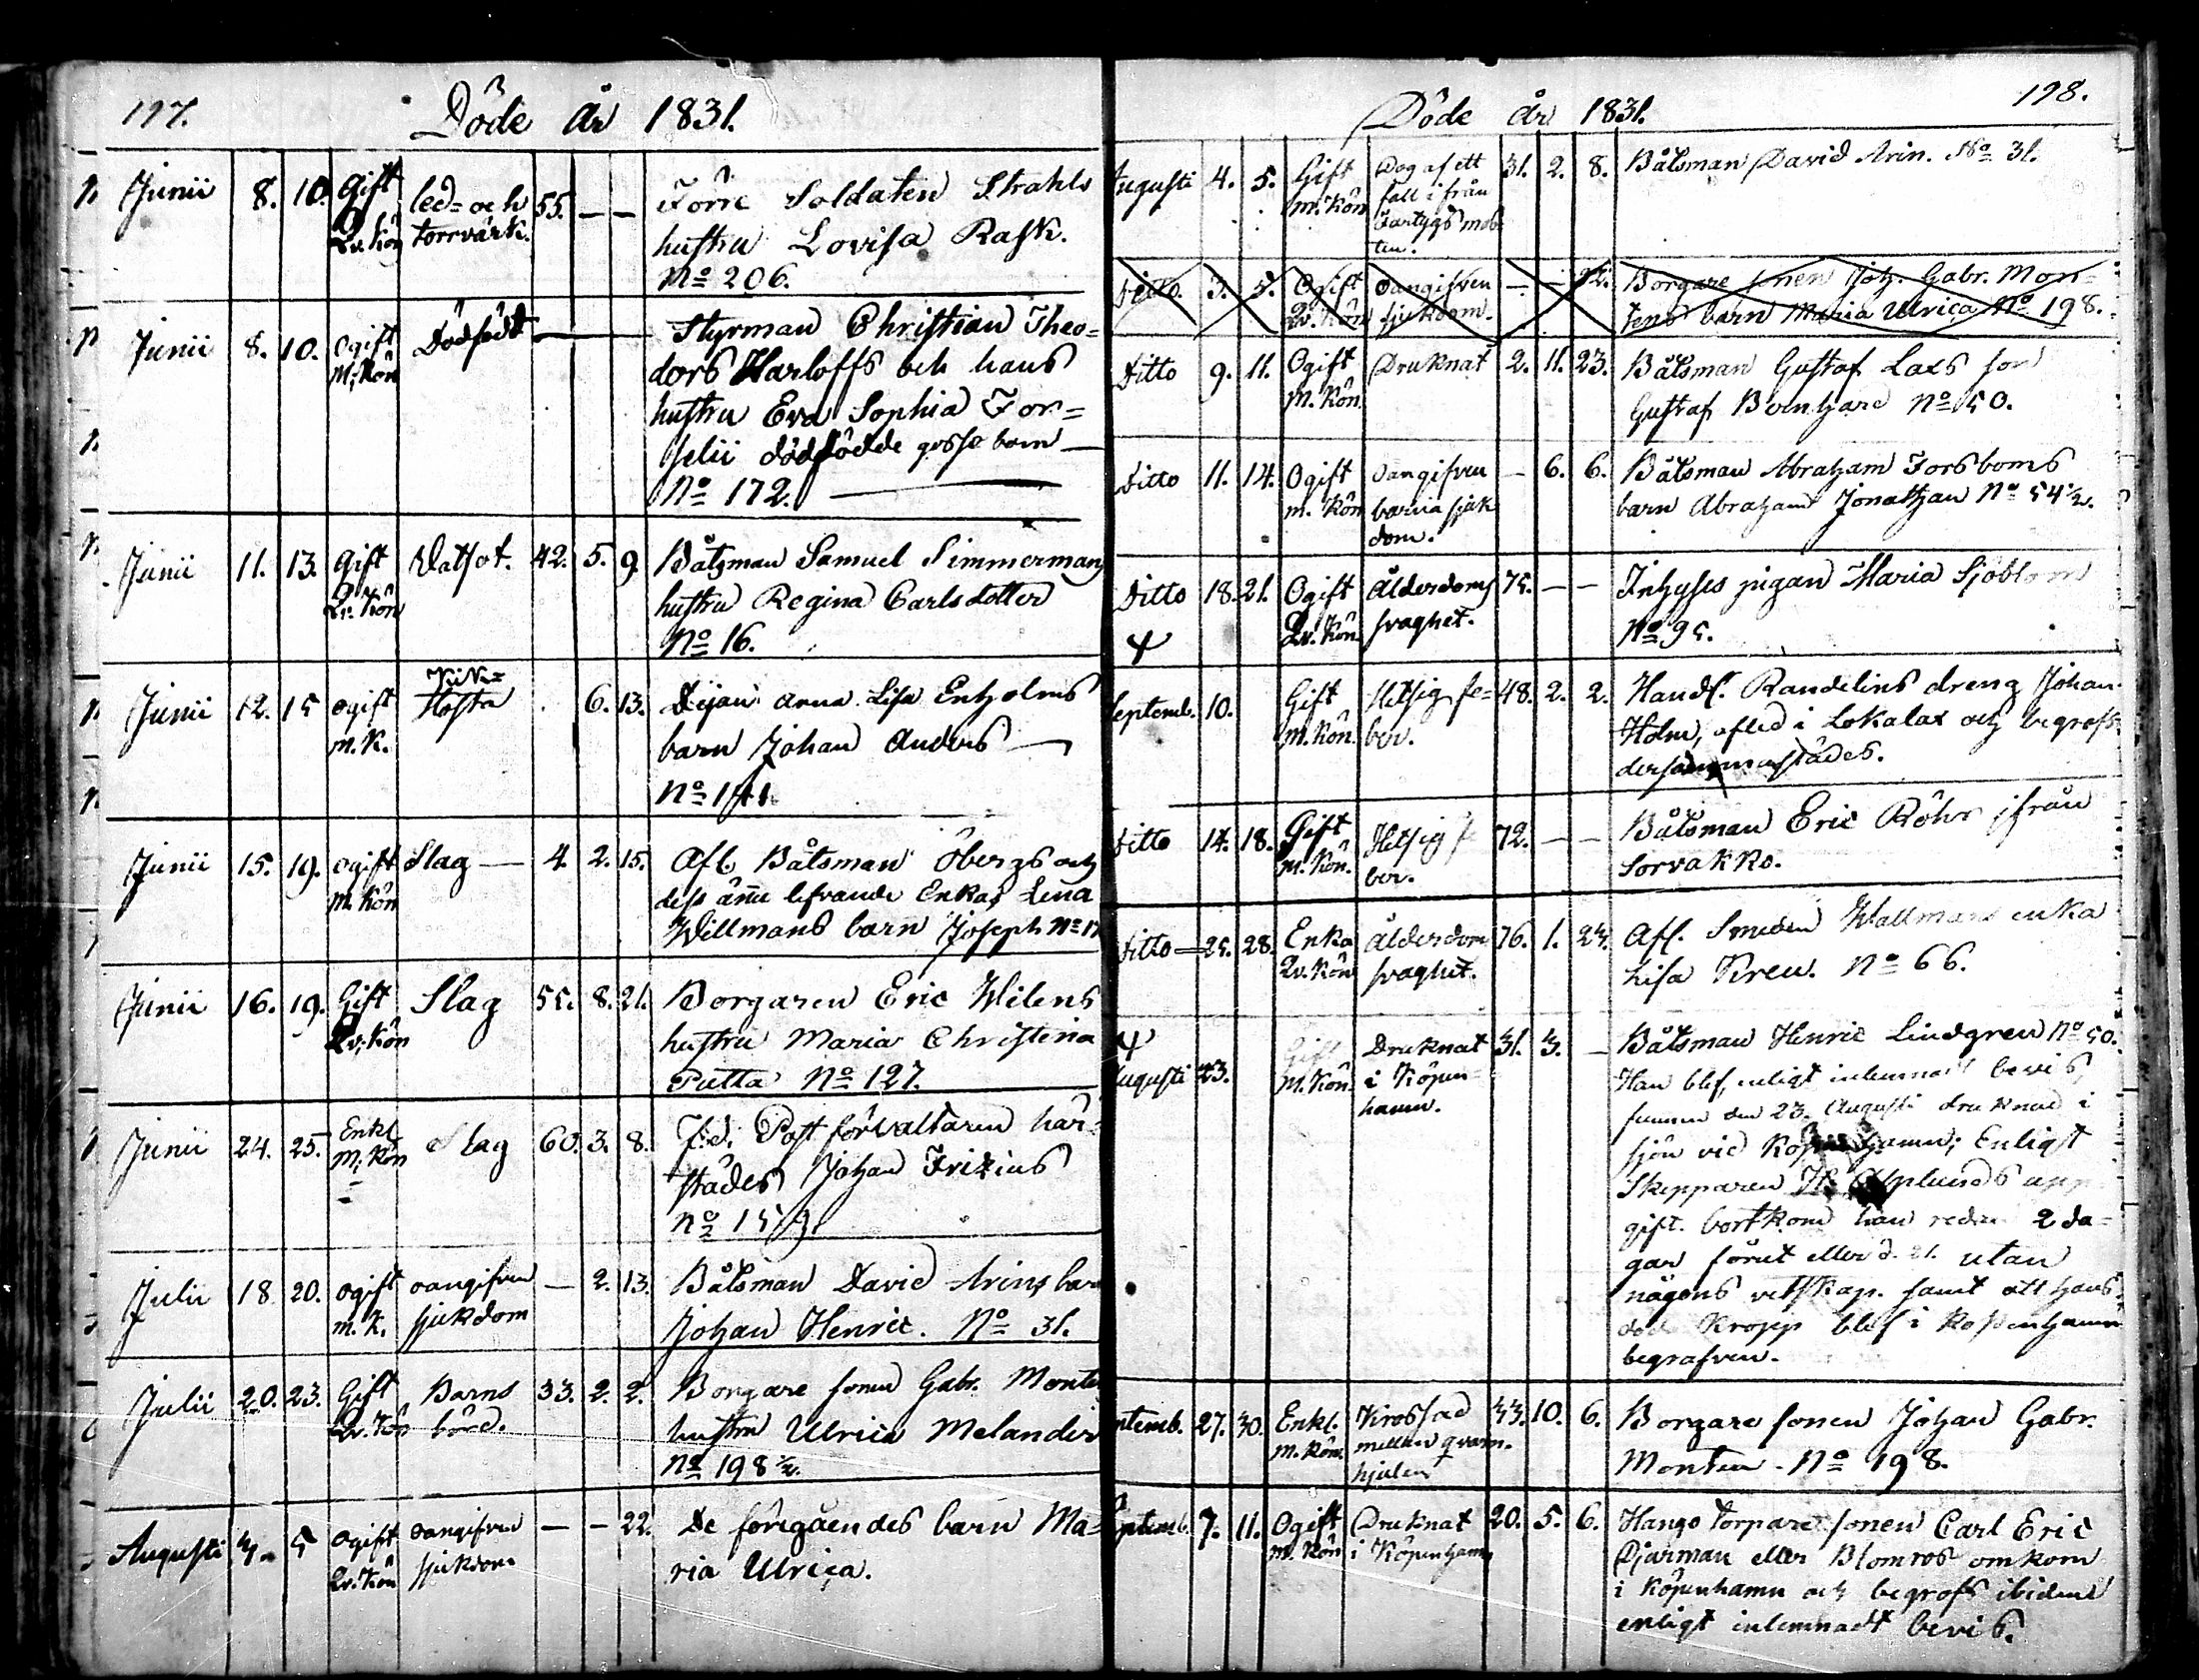 197.
Döde År 1831.
Junii 8. 10. Gift led= och 55. — — Förre Soldaten Strahls
Qv. Kön torrvärk. hustru Lovisa Rask.
No 206.
Junii 8. 10. Ogift Dödfödt — Styrman Christian Theo=
M. Kön dors Harloffs och hans
hustru Eva Sophia For=
selii dödfödde gosse barn —
No 172.
Junii 11. 13. Gift Vatsot. 42. 5. 9 Båtsman Samuel Simmermans
Qv. Kön hustru Regina Carlsdotter
No 16.
Junii 12. 15 Ogift Kik= 6. 13. Anna Lisa Enholms
m. K. Hosta barn Johan Anders —
No
Junii 15. 19. Ogift Slag — 4. 2. 15. Afl. Båtsman Öbergs och
M. Kön dess ännu lefvande Enkas Lena
Willmans barn Joseph No
Junii 16. 19. Gift Slag 55. 8. 21. Borgaren Eric Wilens
Qv. Kön hustru Maria Christina
Putta No 127.
Junii 24. 25. Enkl. Slag 60. 3. 8. F.d. Postförvaltaren här=
M. Kön städes Johan Frizius
No 159.
Julii 18 20. Ogift oangifven — 2. 13. Båtsman David Arins barn
m. K. sjukdom Johan Henric. No 31.
Julii 20. 23. Gift Barns 33. 2. 2. Borgare sonen Gabr. Monten
Qv. Kön börd. hustru Ulrica Melander
No 198 ½.
Augusti 3. 5 Ogift oangifven — — 22. De föregåendes barn Ma=
Qv. Kön sjukdom ria Ulrica.
198.
Döde År 1831.
Augusti 4. 5. Gift Dog af ett 31. 2. 8. Båtsman David Arin. No 31.
M. Kön fall ifrån
Fartygs mas
ten.
Ditto. 3. 5. Ogift Oangifven — — 22. Borgare sonen Joh. Gabr. Mon=
Qv. Kön sjukdom. tens barn Maria Ulrica No 198.
Ditto 9. 11. Ogift Druknat 2. 11. 23. Båtsman Gustaf Laxs son
M. Kön. Gustaf Bernhard No 50.
Ditto 11. 14. Ogift oangifven — 6. 6. Båtsman Abraham Forsboms
m. Kön barna sjuk barn Abraham Jonathan No 54½.
dom.
Ditto 18. 21. Ogift Ålderdoms 75. — — Inhyses pigan Maria Sjöblom
Qv. Kön. svaghet. No 95.
Septemb. 10. Gift Hetsig fe= 48. 2. 2. Handl. Randelins dreng Johan
M. Kön. ber. Holm, afled i Lokalax och begrofs
dersammastädes.
Ditto 14. 18. Gift Hetsig fe 72. — — Båtsman Eric Röhr ifrån
M. Kön. ber. Sorvakko.
Ditto 25. 28. Enka Ålderdoms 76. 1. 24. Afl. Smeden Wallmans enka
Qv. Kön svaghet. Lisa Kreu. No 66.
Augusti 23. Gift Druknat 31. 3. — Båtsman Henric Lindgren No 50.
M. Kön. i Köpen= Han blef, enligt inlemnadt bevis,
hamn. funnen den 23. Augusti druknad i
sjön vid Köpenhamn; Enligt
Skepparen H. Asplunds upp
gift bortkom han redan 2 da=
gar förut eller d. 21. utan
någons vetskap. samt att hans
död Kropp blef i Köpenhamn
begrafven.
Septemb. 27. 30. Enkl. Krossad 33. 10. 6. Borgare sonen Johan Gabr.
M. Kön. mellan qvarn. Monten. No 198.
hjulen
Septemb. 7. 11. Ogift Druknat 20. 5. 6. Hango Torpare sonen Carl Eric
M. Kön i Köpenhamn Djarman eller Blomros omkom
i Köpenhamn och begrofs ibidem
enligt inlemnadt bevis.